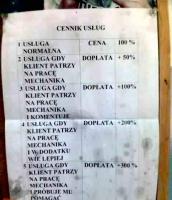 CENNIK USŁUG
1 USŁUGA CENA 100 %
NORMALNA
2 USŁUGA GDY DOPŁATA + 50%
KLIENT PATRZY
NA PRACĘ
MECHANIKA
3 USŁUGA GDY DOPŁATA +100%
KLIENT PATRZY
NA PRACĘ
MECHANIKA
I KOMENTUJE
4 USŁUGA GDY DOPŁATA +200%
KLIENT PATRZY
NA PRACĘ
MECHANIKA
I W DODATKU
WIE LEPIEJ
5 USŁUGA GDY DOPŁATA +300 %
KLIENT PATRZY
NA PRACĘ
MECHANIKA
I PRÓBUJE MU
POMAGAĆ